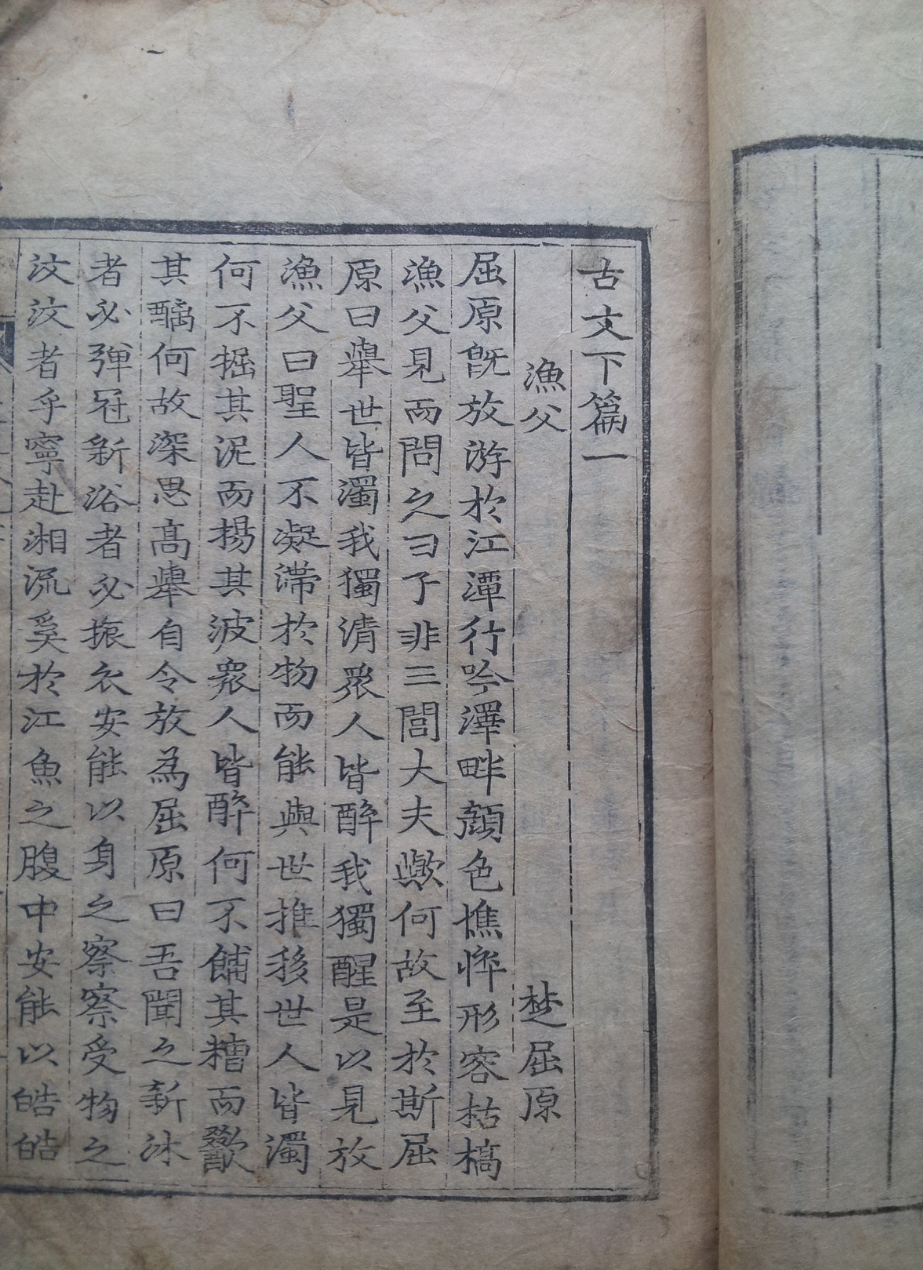 古文下篇一
漁父 楚屈原
屈原旣放游於江潭行吟澤畔顔色憔悴形容枯槁
漁父見而問之曰子非三閭大夫歟何故至於斯屈
原曰擧世皆濁我獨淸衆人皆醉我獨醒是以見放
漁父曰聖人不凝滯於物而能與世推移世人皆濁
何不掘其泥而揚其波衆人皆醉何不餔其糟而歠
其醨何故深思高擧自令放爲屈原曰吾聞之新沐
者必彈冠新浴者必振衣安能以身之察察受物之
汶汶者乎寧赴湘流葬於江魚之腹中安能以皓皓